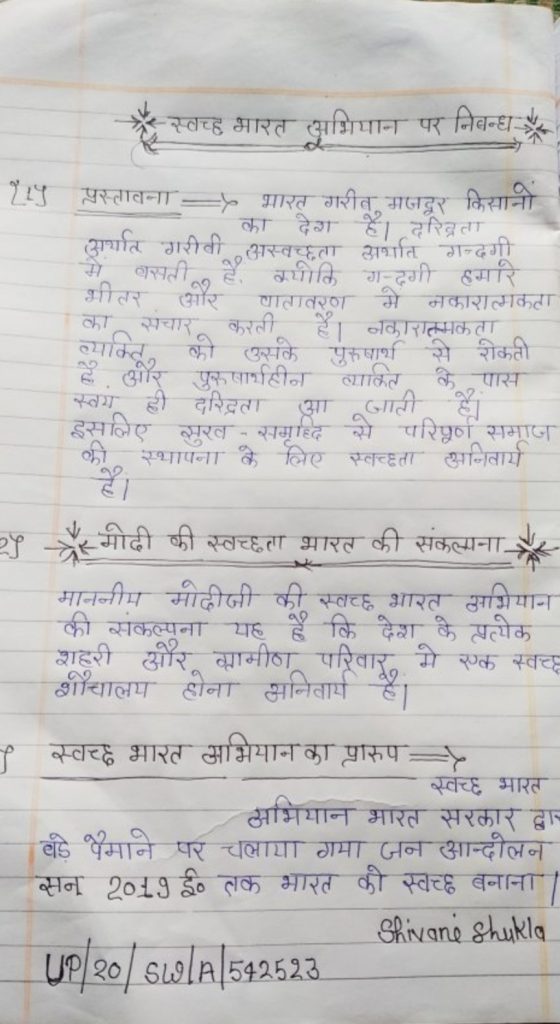 स्वच्छ भारत अभियान पर निबन्ध
प्रस्तावना ⟹ भारत गरीब मजदूर किसानों
का देश है। दरिद्रता
अर्थात गरीबी अस्वच्छता अर्थात गन्दगी
मे बसती है. क्योकि गन्दगी हमारे
भीतर और वातावरण मे नकारात्मकता
का संचार करती है। नकारात्मकता
व्यक्ति को उसके पुरुषार्थ से रोकती
है और पुरुषार्थहीन व्यक्ति के पास
स्वय ही दरिद्रता आ जाती है।
इसलिए सुख-समृद्दि से परिपूर्ण समाज
की स्थापना के लिए स्वच्छता अनिवार्य
है।
मोदी की स्वच्छता भारत की संकल्पना
माननीय मोदीजी की स्वच्छ भारत अभियान
की संकल्पना यह है कि देश के प्रत्येक
शहरी और ग्रामीण परिवार मे एक स्वच्छ
शौचालय होना अनिवार्य है।
स्वच्छ भारत अभियान का प्रारुप ⟹
स्वच्छ भारत
अभियान भारत सरकार द्वा
बड़े पैमाने पर चलाया गया जन आन्दोलन
सन 2019 ई० तक भारत को स्वच्छ बनाना।
Shivani Shukla
UP/20/SW/A/542523